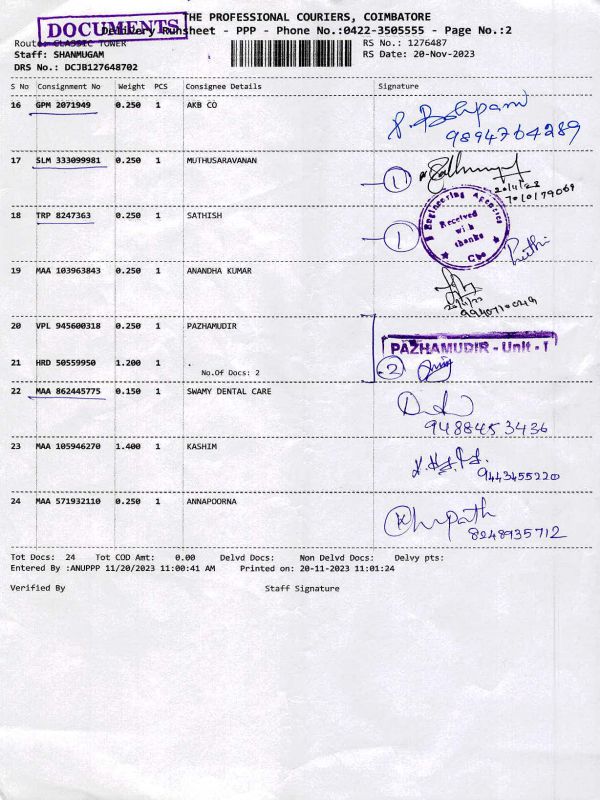 DOCUMENTS
THE PROFESSIONAL COURIERS, COIMBATORE
Delivery Runsheet - PPP - Phone No.:0422-3505555 - Page No.:2
Route: CLASSIC TOWER
RS No.: 1276487
Staff: SHANMUGAM
RS Date: 20-Nov-2023
DRS No.: DCJB127648702
S No Consignment No Weight PCS Consignee Details Signature
16 GPM 2071949 0.250 1 AKB CO
9894764289
17 SLM 333099981 0.250 1 MUTHUSARAVANAN
1
20/11/23
18 TRP 8247363 0.250 1 SATHISH
1
Engineering Agencies
Received
with
thanks
Cbe
19 MAA 103963843 0.250 1 ANANDHA KUMAR
20 VPL 945600318 0.250 1 PAZHAMUDIR
PAZHAMUDIR - Unit - 1
21 HRD 50559950 1.200 1 .
No.Of Docs: 2
2
22 MAA 862445775 0.150 1 SWAMY DENTAL CARE
9488453436
23 MAA 105946270 1.400 1 KASHIM
9443455220
24 MAA 571932110 0.250 1 ANNAPOORNA
8248935712
Tot Docs: 24 Tot COD Amt: 0.00 Delvd Docs: Non Delvd Docs: Delvy pts:
Entered By :ANUPPP 11/20/2023 11:00:41 AM Printed on: 20-11-2023 11:01:24
Verified By Staff Signature